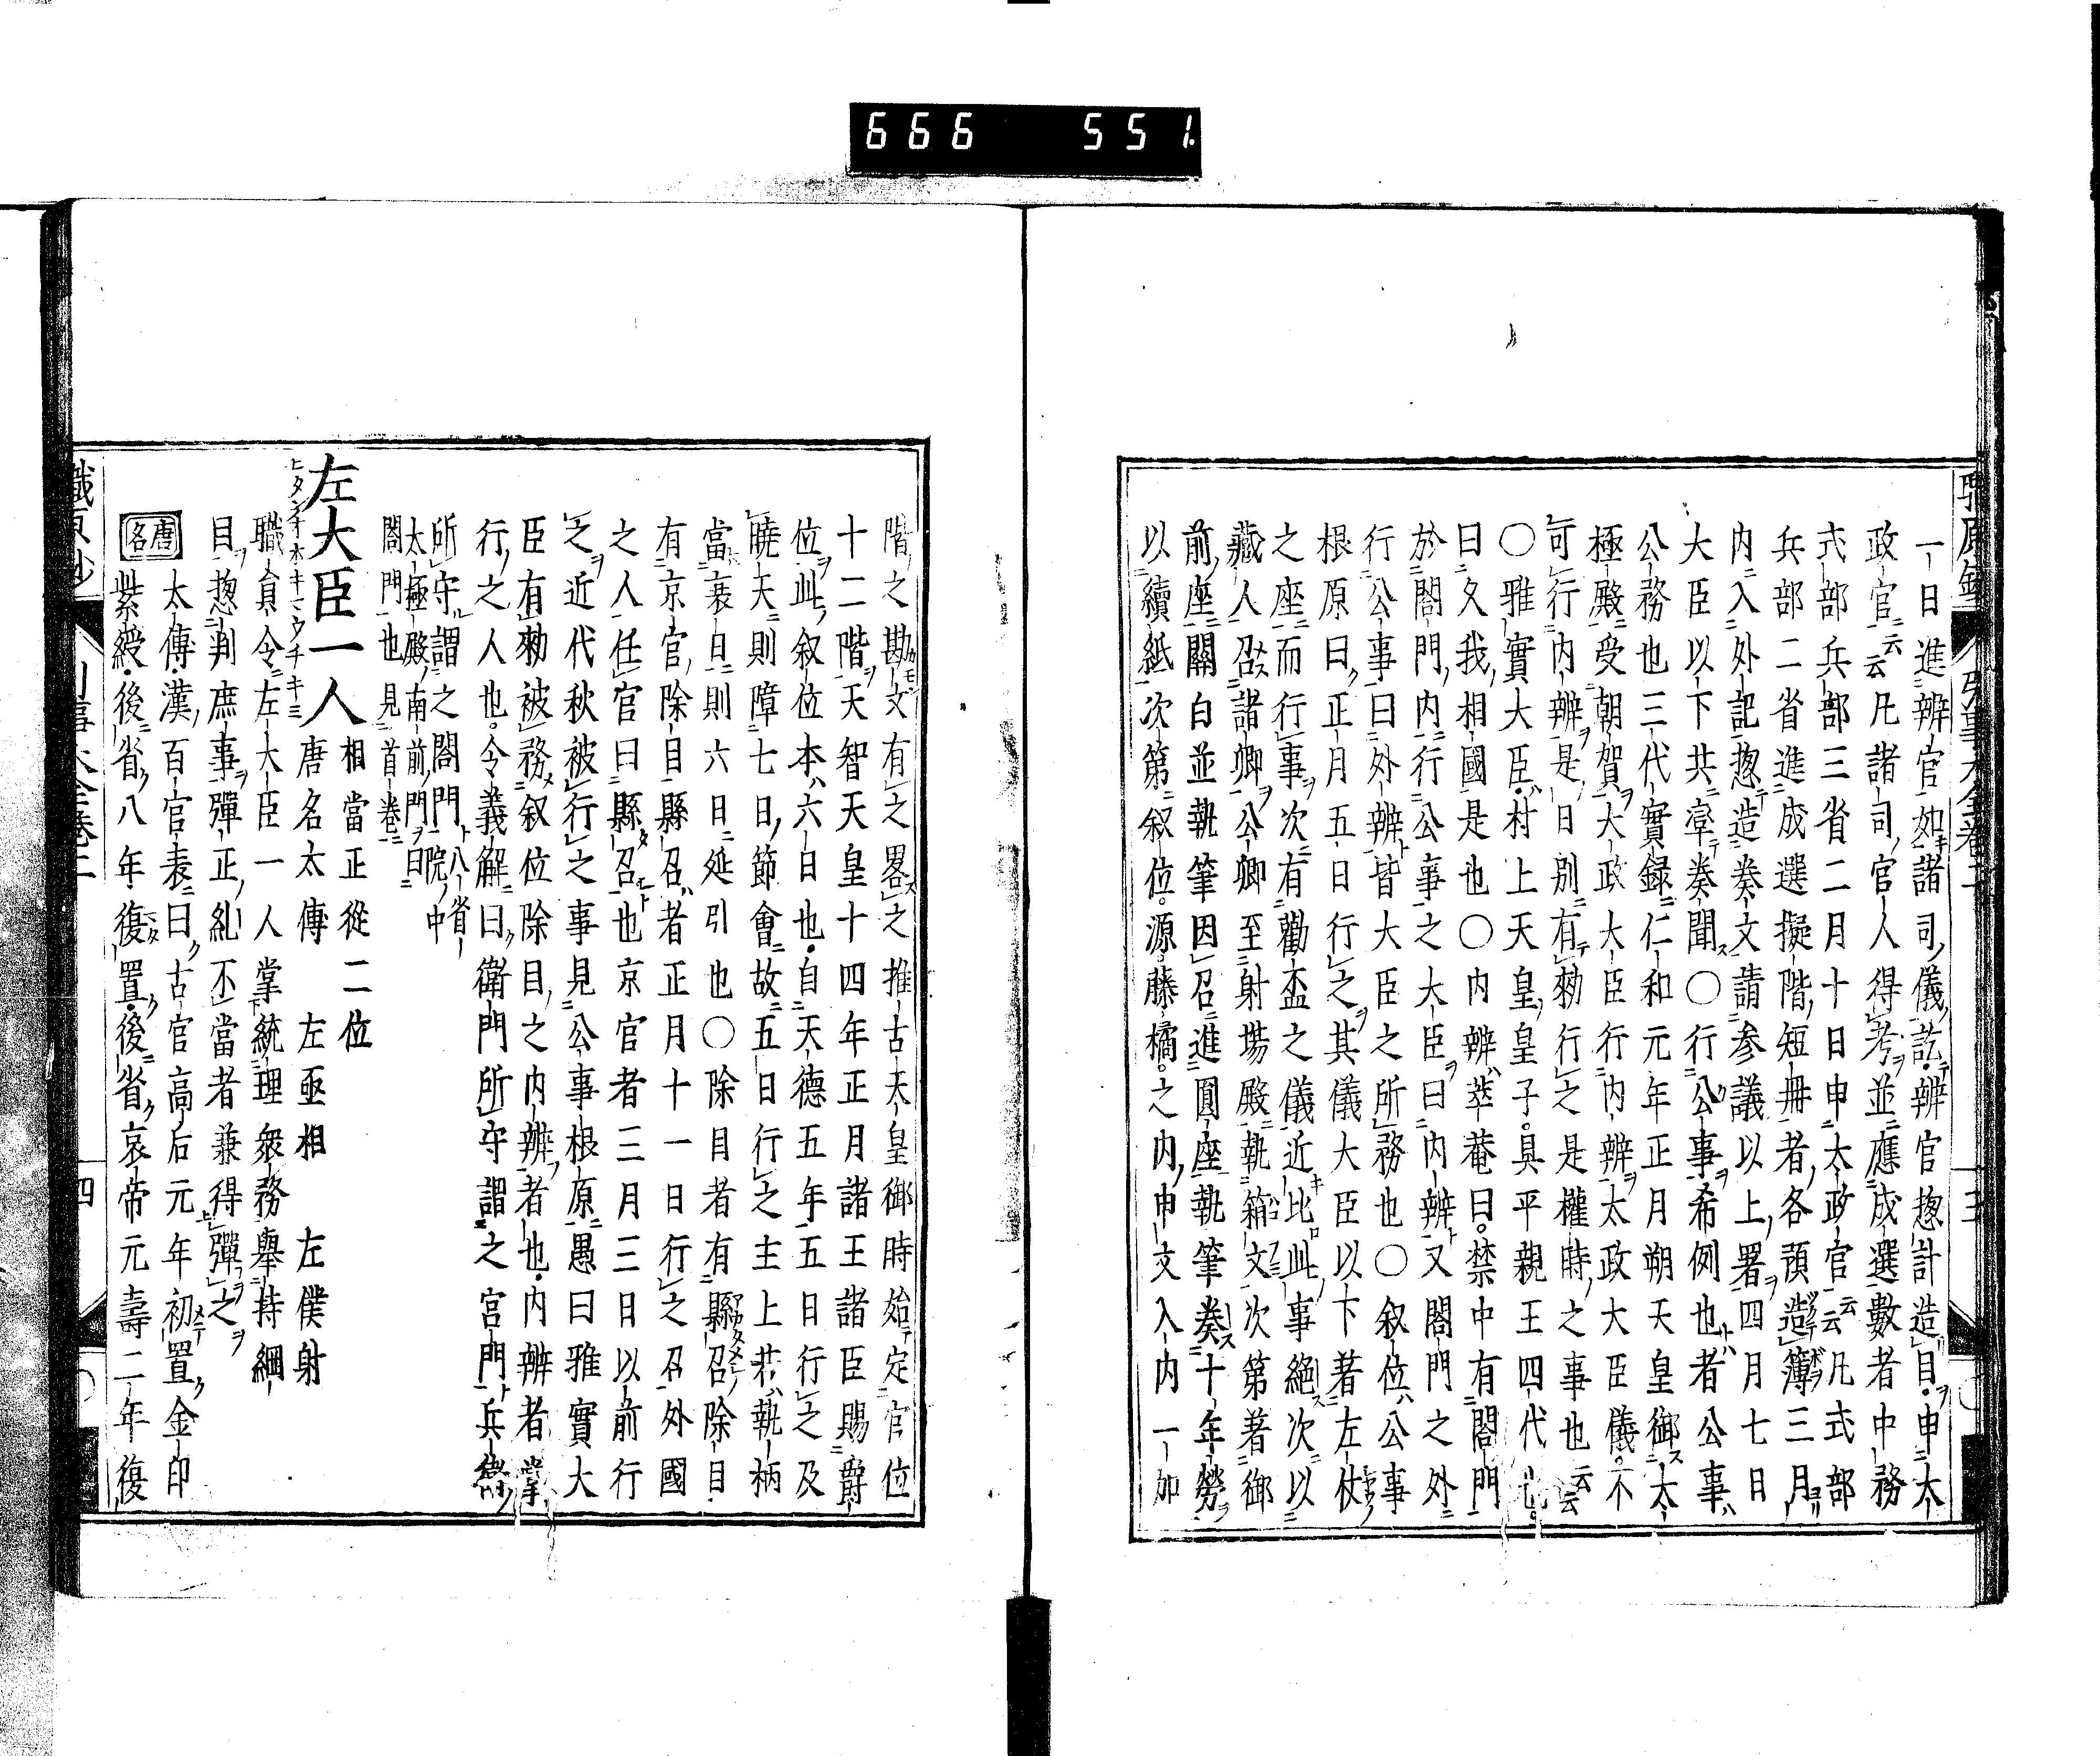 666 551
一日進辨官如諸司儀訖辨官揔計造目申太
政官云云凡諸司官人得考並應成選數者中務
式部兵部三省二月十日申太政官云云凡式部
兵部二省進成選擬階短冊者各預造簿三月
内入外記揔造奏文請参議以上署四月七日
大臣以下共奏聞〇行公事希例也者公事
公務也三代實録仁和元年正月朔天皇御太
極殿受朝賀大政大臣行内辨太政大臣儀不
可行内辨是日別有勅行之是權時之事也云云
〇雅實大臣村上天皇皇子具平親王四代也
曰久我相國是也〇内辨萃菴曰禁中有閤門
於閤門内行公事之大臣曰内辨又閤門之外
行公事曰外辨皆大臣之所務也〇叙位公事
根原曰正月五日行之其儀大臣以下著左仗
之座而行事次有勸盃之儀近比此事絶次以
藏人召諸卿公卿至射場殿執箱文次第著御
前座關白並執筆因召進圓座執筆奏十年勞
以續紙次第叙位源藤橘之内申文入内一加
階之勘文有之畧之推古天皇御時始定官位
十二階天智天皇十四年正月諸王諸臣賜爵
位此叙位本六日也自天德五年五日行之及
曉天則障七日節會故五日行之主上若執柄
當衰日則六日延引也〇除目者有縣召除目
有京官除目縣召者正月十一日行之召外國
之人任官曰縣召也京官者三月三日以前行
之近代秋被行之事見公事根原愚曰雅實大
臣有勅被務叙位除目之内辨者也内辨者掌
行之人也令義解曰衛門所守謂之宮門兵衛
所守謂之閤門八省院中
太極殿南前門曰
閤門也見首卷
左大臣一人 相當正從二位
唐名太傳 左亟相 左僕射
職員令左大臣一人掌統理衆務舉持綱
目揔判庶事彈正糺不當者兼得彈之
唐名 太傳漢百官表曰古官高后元年初置金印
紫綬後省八年復置後省哀帝元壽二年復
四